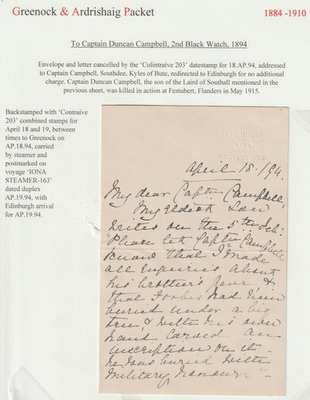 Greenock & Ardrishaig Packet
1884 -1910
To Captain Duncan Campbell, 2nd Black Watch, 1894
Envelope and letter cancelled by the 'Colintraive 203' datestamp for 18.AP.94, addressed
to Captain Campbell, Southdee, Kyles of Bute, redirected to Edinburgh for no additional
charge. Captain Duncan Campbell, the son of the Laird of Southall mentioned in the
previous sheet, was killed in action at Festubert, Flanders in May 1915.
Backstamped with 'Contraive
203' combined stamps for
April 18 and 19, between
times to Greenock on
AP.18.94, carried
by steamer and
postmarked on
voyage 'IONA
STEAMER-163'
dated duplex
AP.19.94, with
Edinburgh arrival
for AP.19.94.
April 18. /94.
My dear Captn Campbell
My Eldest Son
writes on the 5th
Please let Captn Campbell
know that I made
all enquiries about
his brother's grave &
that Forbes had him
buried under a big
tree, & with his own
hand carved an
inscription on it-
he was buried with
Military honours"-